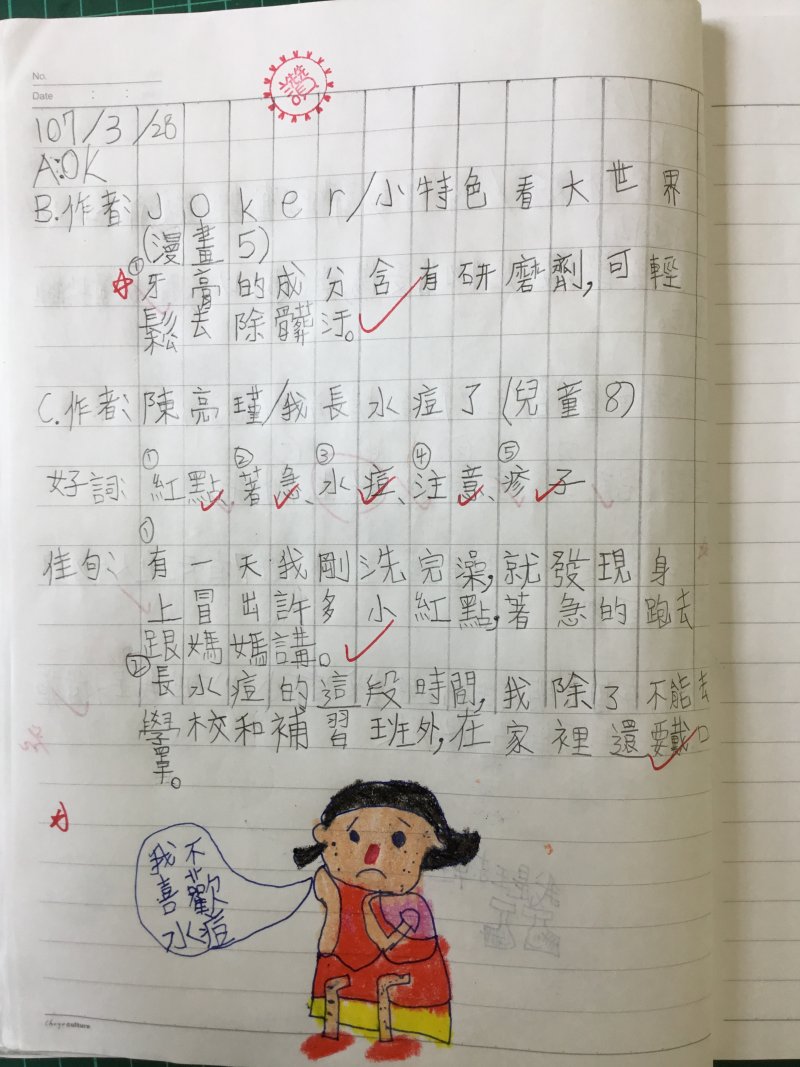 No.
Date : :
讚
107/3/28
A:OK
B.作者:Joker/小特色看大世界
(漫畫5)
①牙膏的成分含有研磨劑,可輕
鬆去除髒汙。
C.作者:陳亮瑾/我長水痘了(兒童8)
好詞:①紅點、②著急、③水痘、④注意、⑤疹子
佳句:①有一天我剛洗完澡,就發現身
上冒出許多小紅點,著急的跑去
跟媽媽講。
②長水痘的這段時間,我除了不能去
學校和補習班外,在家裡還要戴口
罩。
我不
喜歡
水痘